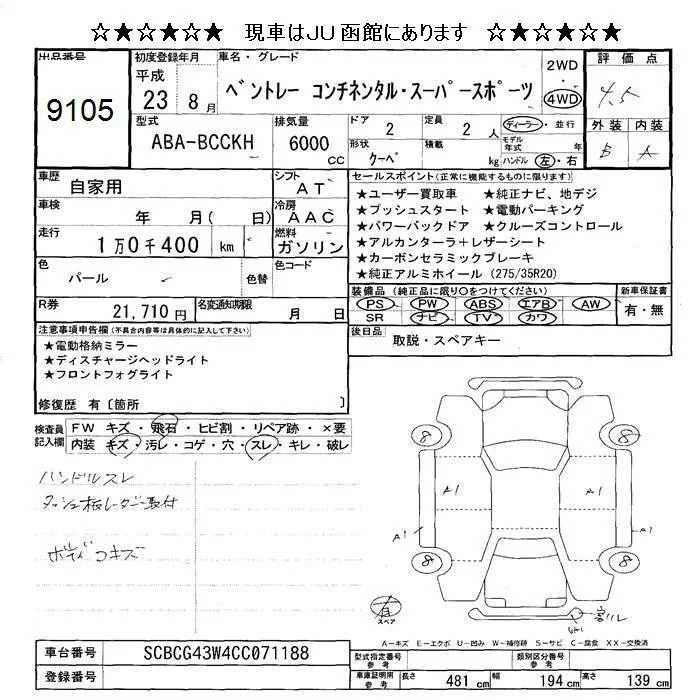 ☆★☆★☆★ 現車はJU函館にあります ☆★☆★☆★
出品番号 9105
初度登録年月 平成 23 8月
車名・グレード ベントレー コンチネンタル・スーパースポーツ
2WD 4WD
評価点 4.5
外装 B 内装 A
型式 ABA-BCCKH
排気量 6000 CC
ドア 2
定員 2人
ディーラー・並行
形状 クーペ
積載 kg
モデル年式 年
ハンドル 左・右
車歴 自家用
シフト AT
車検 年 月( 日)
冷房 AAC
走行 1万0千400 km
燃料 ガソリン
色 パール 色替
色コード
R券 21,710円
名変通知期限 月 日
セールスポイント(正常に機能するものに限ります)
★ユーザー買取車 ★純正ナビ、地デジ
★プッシュスタート ★電動パーキング
★パワーバックドア ★クルーズコントロール
★アルカンターラ+レザーシート
★カーボンセラミックブレーキ
★純正アルミホイール(275/35R20)
装備品(純正品に限り○をつけてください)
新車保証書
PS PW ABS エアB AW 有・無
SR ナビ TV カワ
後日品 取説・スペアキー
注意事項申告欄(不具合内容等は具体的に記入して下さい)
★電動格納ミラー
★ディスチャージヘッドライト
★フロントフォグライト
修復歴 有〔箇所 〕
検査員記入欄
FW キズ・飛石・ヒビ割・リペア跡・×要
内装 キズ・汚レ・コゲ・穴・スレ・キレ・破レ
ハンドルスレ
ダッシュ板レーダー取付
ボディコキズ
8 8
A1 A1
A1 A1
8 8
スペア
A-キズ E-エクボ U-凹み W-補修跡 S-サビ C-腐食 XX-交換済
車台番号 SCBCG43W4CC071188
型式指定番号 参考
類別区分番号 参考
登録番号
車庫証明用 参考 長さ 481cm 幅 194cm 高さ 139cm